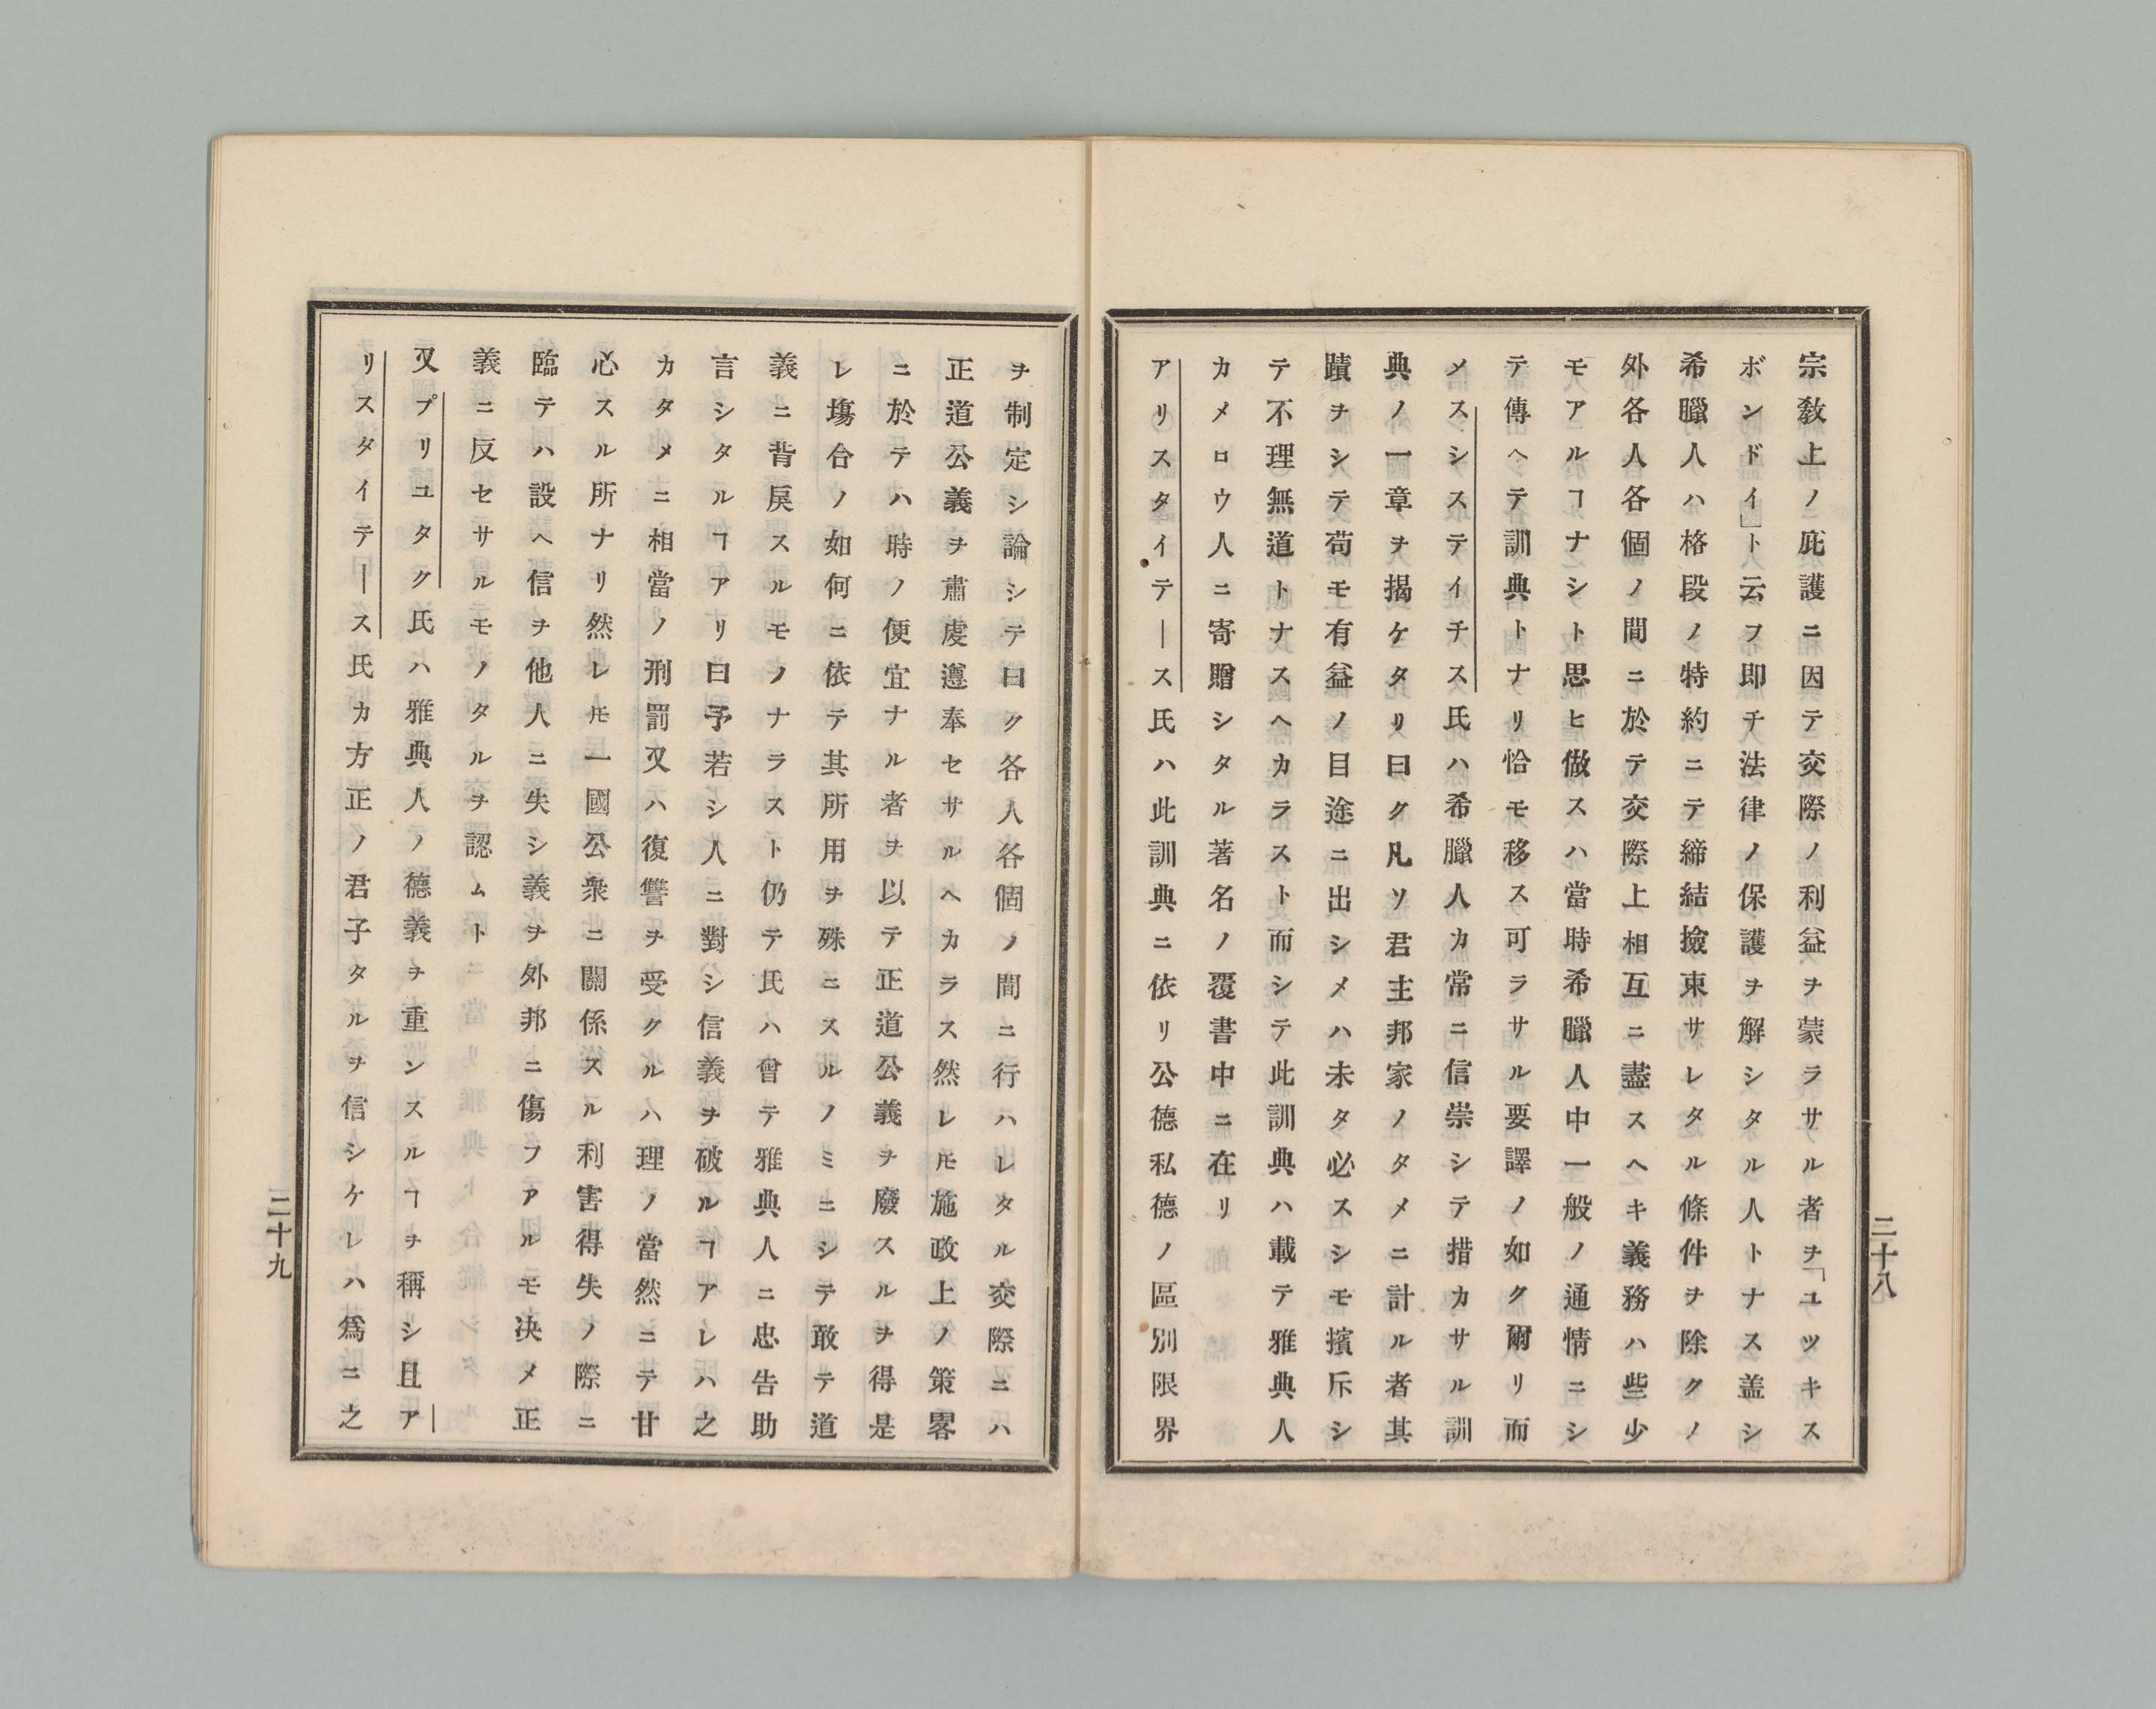 宗敎上ノ庇護ニ因テ交際ノ利益ヲ蒙ラサル者ヲ「ユツキス
ボンドイ」ト云フ即チ法律ノ保護ヲ解シタル人トナス盖シ
希臘人ハ格段ノ特約ニテ締結撿束サレタル條件ヲ除クノ
外各人各個ノ間ニ於テ交際上相互ニ盡スヘキ義務ハ些少
モアルヿナシト思ヒ做スハ當時希臘人中一般ノ通情ニシ
テ傳ヘテ訓典トナリ恰モ移ス可ラサル要譯ノ如ク爾リ而
メスシステイチス氏ハ希臘人カ常ニ信崇シテ措カサル訓
典ノ一章ヲ揭ケタリ曰ク凡ソ君主邦家ノタメニ計ル者其
蹟ヲシテ苟モ有益ノ目途ニ出シメハ未タ必スシモ擯斥シ
テ不理無道トナスヘカラスト而シテ此訓典ハ載テ雅典人
カメロウ人ニ寄贈シタル著名ノ覆書中ニ在リ
アリスタイテース氏ハ此訓典ニ依リ公德私德ノ區別限界
二十八
ヲ制定シ論シテ曰ク各人各個ノ間ニ行ハレタル交際ニハ
正道公義ヲ肅虔遵奉セサルヘカラス然レㇳモ施政上ノ策畧
ニ於テハ時ノ便宜ナル者ヲ以テ正道公義ヲ廢スルヲ得是
レ塲合ノ如何ニ依テ其所用ヲ殊ニスルノミニシテ敢テ道
義ニ背戾スルモノナラスト仍テ氏ハ曾テ雅典人ニ忠告助
言シタルヿアリ曰予若シ人ニ對シ信義ヲ破ルヿアレハ之
カタメニ相當ノ刑罰又ハ復讐ヲ受クルハ理ノ當然ニテ甘
心スル所ナリ然レㇳモ一國公衆ニ關係スル利害得失ノ際ニ
臨テハ設ヘ信ヲ他人ニ失シ義ヲ外邦ニ傷フアルモ决メ正
義ニ反セサルモノタルヲ認ムト
又プリユタク氏ハ雅典人ノ德義ヲ重ンスルヿヲ稱シ且ア
リスタイテース氏カ方正ノ君子タルヲ信シケレハ爲ニ之
二十九